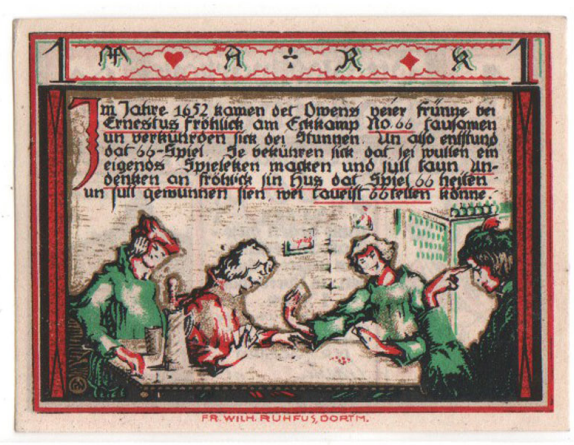 1 MARK 1
Im Jahre 1652 kamen det Owens veier Frünne bei
Ernestus Fröhlick am Eckkamp No 66 tausamen
un verkührden sick dei Stunnen. Un also entstund
dat 66-Spiel. Se bekühren sick dat sei wullen ein
eigenos Speleken macken und sull taun An-
denken an Fröhlick sin Hus dat Spiel 66 heiten
un sull gewunnen sien, wei tauelst 66 tellen könne.
FR. WILH. RUHFUS, DORTM.